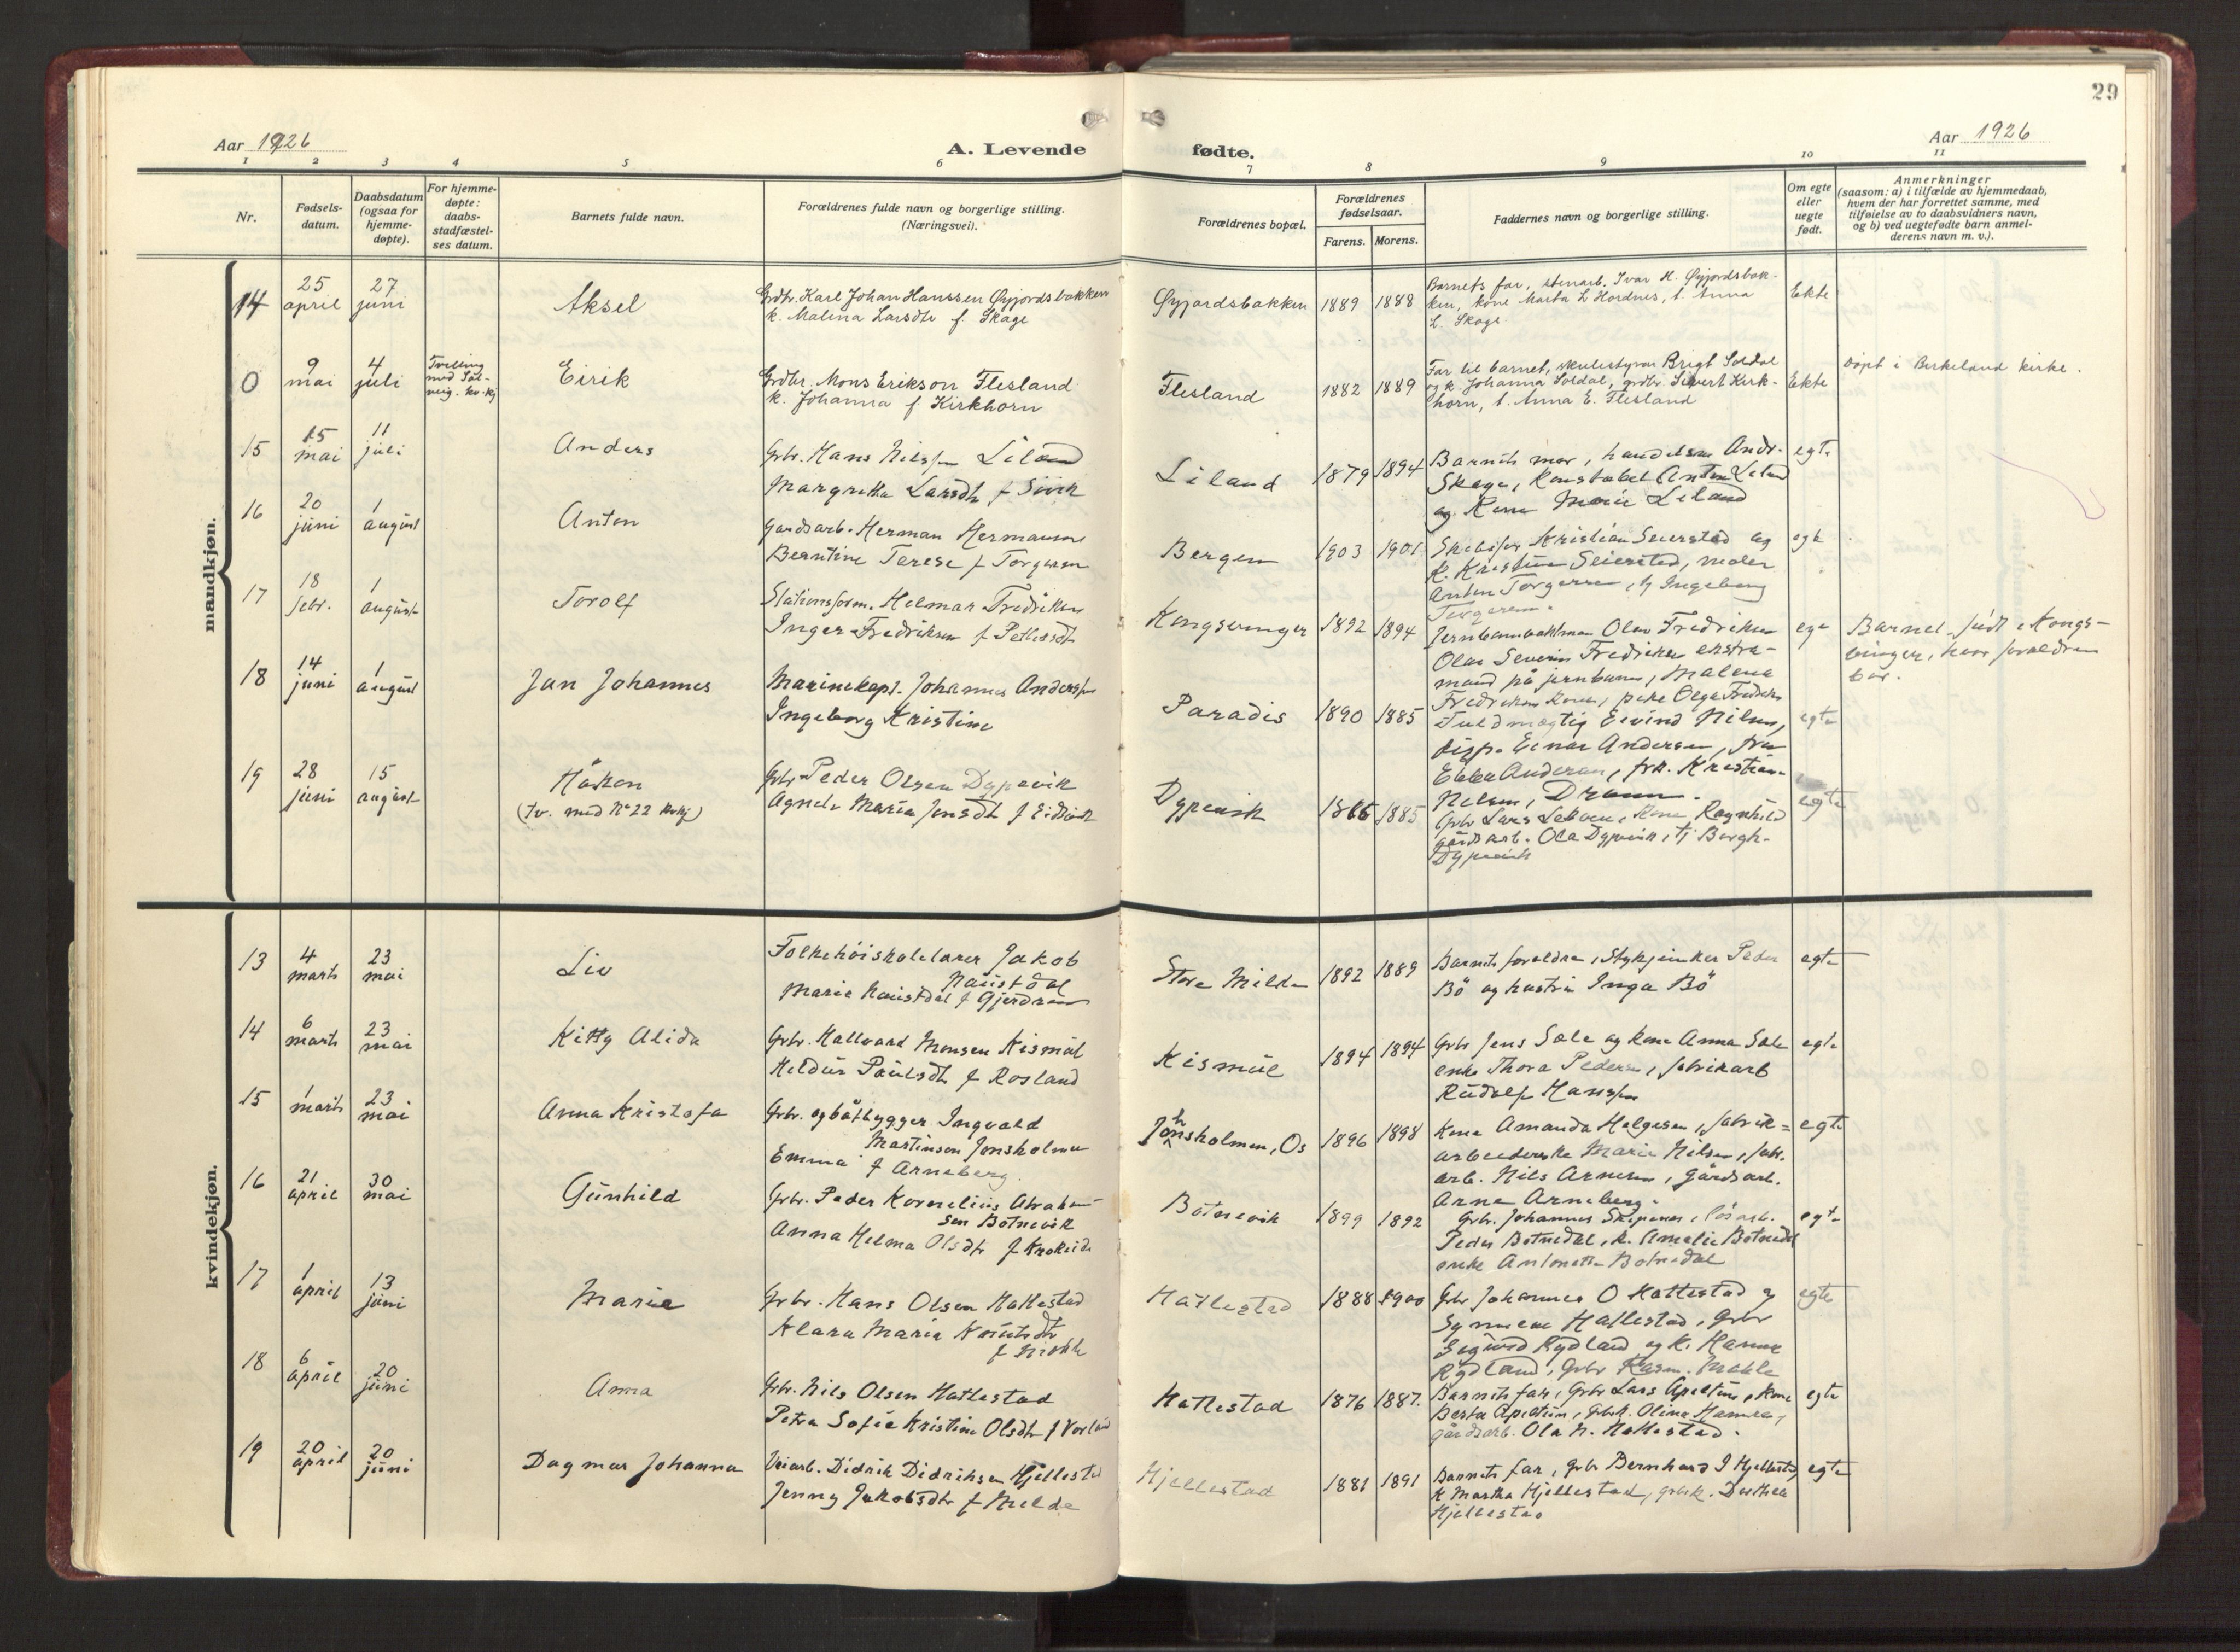 29
Aar 1926
A. Levende fødte.
Aar 1926
1 2 3 4 5 6 7 8 9 10 11
Nr.
Fødsels-
datum.
Daabsdatum
(ogsaa for
hjemme-
døpte).
For hjemme-
døpte:
daabs-
stadfæstel-
ses datum.
Barnets fulde navn.
Forældrenes fulde navn og borgerlige stilling.
(Næringsvei).
Forældrenes bopæl.
Forældrenes
fødselsaar.
Farens. Morens.
Faddernes navn og borgerlige stilling.
Om egte
eller
uegte
født.
Anmerkninger
(saasom: a) i tilfælde av hjemmedaab,
hvem der har forrettet samme, med
tilføielse av to daabsvidners navn,
og b) ved uegtefødte barn anmel-
derens navn m. v.).
mandkjøn.
14
25
april
27
juni
Aksel
Grdbr. Karl Johan Hanssen Øyjordsbakken
k. Malina Larsdtr f. Skage
Øyjordsbakken
1889 1888
Barnets far, stenarb. Ivar H. Øyjordsbak-
ken, kone Marta L Hordnes, t. Anna
L. Skage.
Ekte
0
9
mai
4
juli
Tvilling
med Sol-
veig. kv.kj
Eirik
Grdbr. Mons Erikson Flesland
k. Johanna f Kirkhorn
Flesland
1882 1889
Far til barnet, skulestyrar Brigt Soldal
og k. Johanna Soldal, grdbr. Sivert Kirk-
horn, t. Anna E. Flesland
Ekte
Døpt i Birkeland kirke.
15
15
mai
11
juli
Anders
Gbr. Hans Nilssen Liland
Margretha Larsdtr f Søvik
Liland
1879 1894
Barnets mor, handelsm Andr.
Skage, Konstabel Anton Liland
og Kone Marie Liland
egte
16
20
juni
1
august
Anton
Gardsarb. Herman Hermansen
Berntine Terese f Torgersen
Bergen
1903 1901
Kristian Seierstad og
k. Kristine Seierstad, maler
Anton Torgersen, tj Ingeborg
Torgersen.
egte
17
18
febr.
1
august
Torolf
Stationsform. Helmar Fredriksen
Inger Fredriksen f
Kongsvinger
1892 1894
Olav Fredriksen
Olav Severin Fredriksen ekstra-
mand på jernbanen, Malena
Fredriksen Kone, pike Olga Fredriksen
egte
Barnet født i Kongs-
vinger, hvor foreldrene
bor.
18
14
juni
1
august
Jan Johannes
Marinekapt. Johannes Anderssen
Ingeborg Kristine
Paradis
1890 1885
Fuldmægtig Eivind Nilsen,
disp. Einar Andersen, fru
Ebba Andersen, frk. Kristian-
Nilsen,
egte
19
28
juni
15
august
Håkon
(tv. med No 22 kvkj)
Gbr Peder Olsen Dypevik
Agnete Maria Jensdtr f Eidsvik
Dypevik
1885
Gbr Lars Lekven, Kone Ragnhild
gårdsarb. Ola Dypevik, tj Borgh.
Dypevik
egte
kvindekjøn.
13
4
marts
23
mai
Liv
Folkehöiskolelærer Jakob
Naustdal
Marie Naustdal f Gjerdram
Store Milde
1892 1889
Barnets foreldre, Styrkjunker Peder
Bö og hustru Inga Bö
egte
14
6
marts
23
mai
Kitty Alida
Gbr. Hallvard Monsen Kismul
Heldur Paulsdtr f Rosland
Kismul
1894 1894
Gbr Jens Sæle og Kone Anna Sæle
enke Thora Pedersen, fabrikarb
Rudolf Hanssen
egte
15
1
marts
23
mai
Anna Kristofa
Gbr. og båtbygger Ingvald
Martinsen Jonsholmen
Emma f Arneberg.
Johnsholmen, Os
1896 1898
Kone Amanda Helgesen, fabrik=
arbeiderske Marie Nilsen, fab.
arb. Nils Arnesen, gårdsarb.
Arne Arneberg.
egte
16
21
april
30
mai
Gunhild
Gbr. Peder Kornelius Abraham-
sen Botnevik
Anna Helma Olsdtr f Krokeide
Botnevik
1899 1892
Gbr. Johannes Skipenes, lösarb.
Peder Botnedal, k. Amalie Botnedal
enke Antonette Botnedal
egte
17
1
april
13
juni
Marie
Gbr. Hans Olsen Hatlestad
Klara Maria Knutsdtr
Hatlestad
1888 1900
Gbr Johannes O Hatlestad og
Synneve Hatlestad, Gbr
Sigurd Rydland og K. Hanna
Rydland, Gbr Rasm.
egte
18
6
april
20
juni
Anna
Gbr. Nils Olsen Hatlestad
Petra Sofie Kristine Olsdtr f Vorland
Hatlestad
1876 1887.
Barnets far, Gbr Lars Apeltun, Kone
Berta Apeltun, Gbrk. Olina Hamre,
gårdsarb. Ola N. Hatlestad.
egte
19
20
april
20
juni
Dagmar Johanna
Veiarb. Didrik Didriksen Hjellestad
Jenny Jakobsdtr f Milde
Hjellestad
1881 1891
Barnets far, Gbr Bernhard J Hjellestad,
K Martha Hjellestad, gbrk. Dorthea
Hjellestad
egte